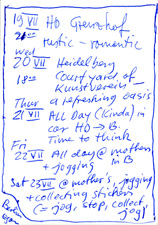 19 VII HD Grenzhof
21⁰⁰ rustic - romantic
Wed
20 VII Heidelberg
18⁰⁰ Courtyard of
Kunstverein
Thur a refreshing oasis
21 VII All Day (Kinda) in
car HD → B.
Time to think
Fri
22 VII All day @ mothers
+ jogging in B
Sat 23 VII @ mother's, jogging
+ collecting stickers
(= jog, stop, collect,
jog)
Berlin